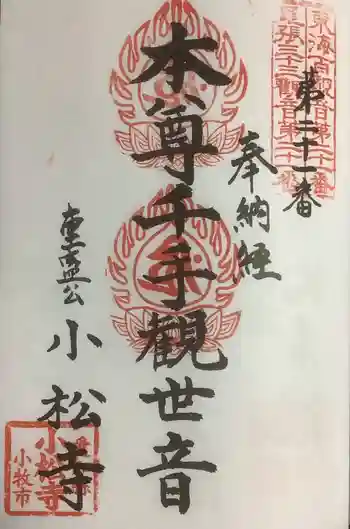 東海百観音第二十一番
尾張三十三観音第二十一番
第二十一番
奉納経
本尊千手観世音
小松寺
小松寺
小牧市